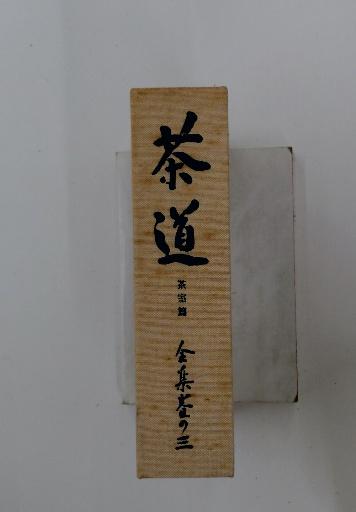 茶道
茶室篇
全集巻の三